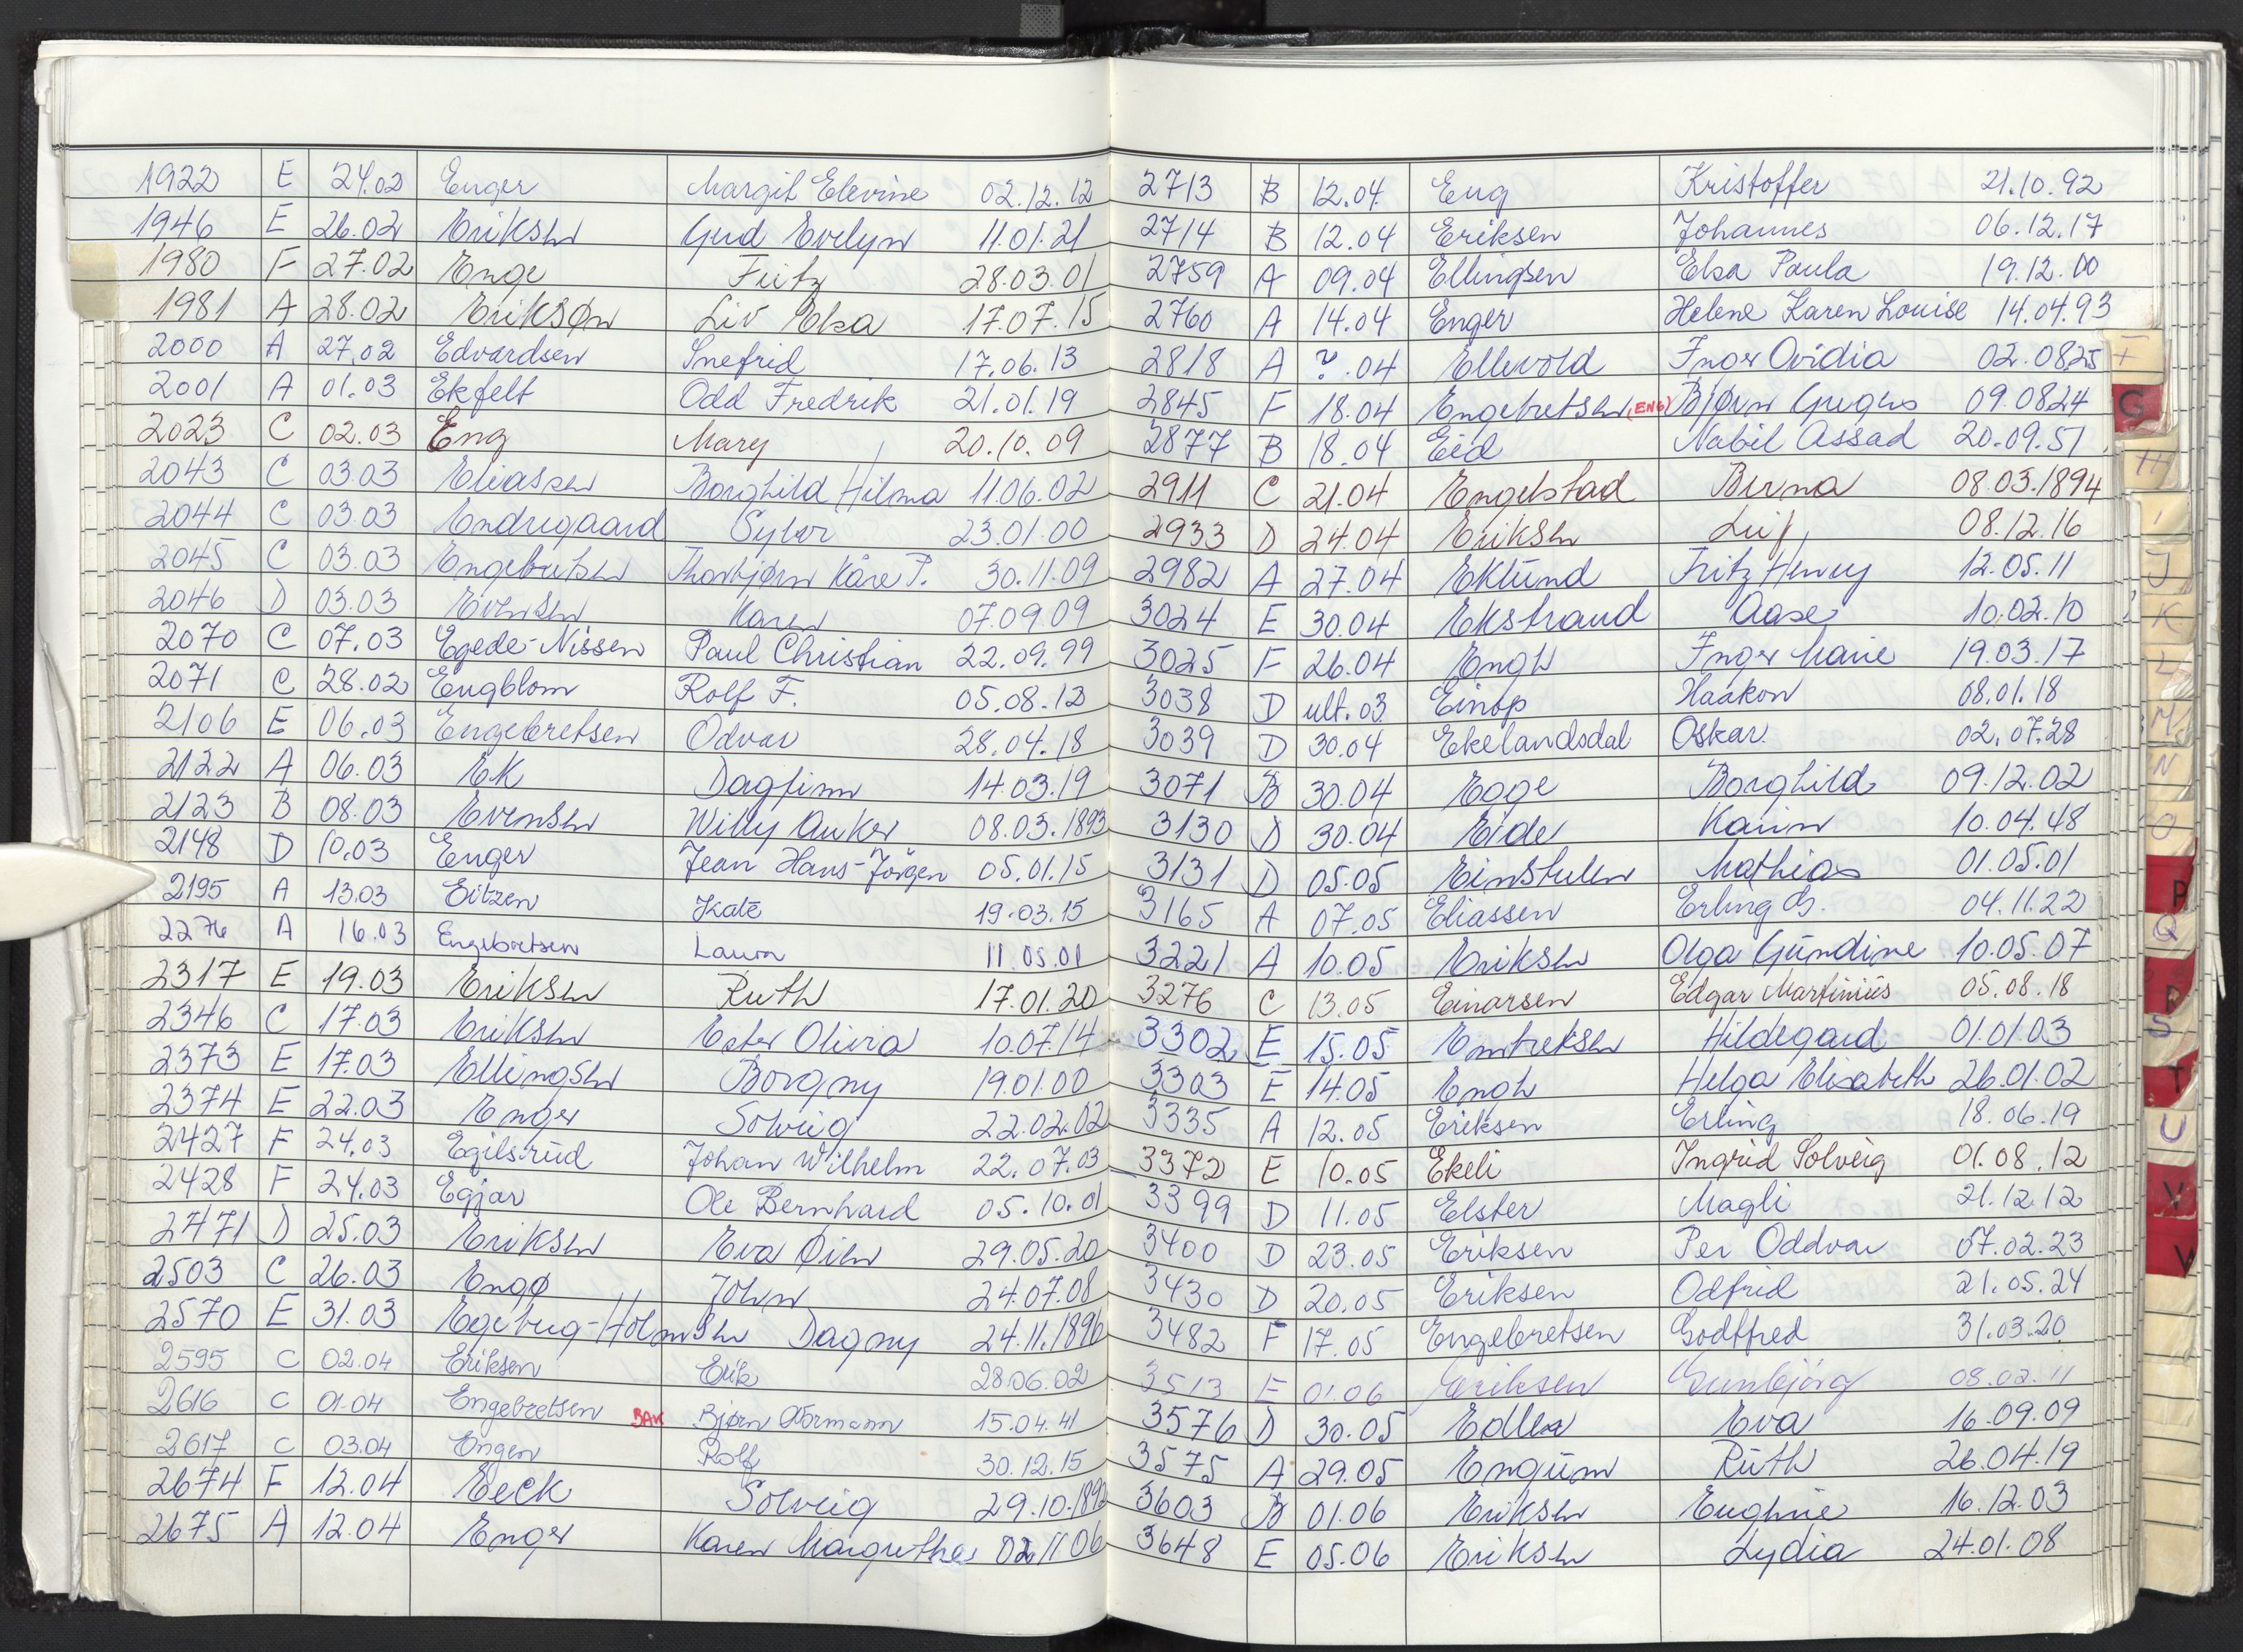 1922 E 24.02 Enger Margit Elevine 02.12.12
1946 E 26.02 Eriksen Gud Evelyn 11.01.21
1980 F 27.02 Enge Fritz 28.03.01
1981 A 28.02 Eriksøn Liv Elsa 17.07.15
2000 A 27.02 Edvardsen Snefrid 17.06.13
2001 A 01.03 Ekfelt Odd Fredrik 21.01.19
2023 C 02.03 Eng Mary 20.10.09
2043 C 03.03 Eliassen Borghild Hilma 11.06.02
2044 C 03.03 Endregaard Sylvor 23.01.00
2045 C 03.03 Engebretsen Thorbjørn Kåre P. 30.11.09
2046 D 03.03 Evensen Karen 07.09.09
2070 C 07.03 Egede-Nissen Paul Christian 22.09.99
2071 C 28.02 Engblom Rolf F. 05.08.12
2106 E 06.03 Engebretsen Odvar 28.04.18
2122 A 06.03 Ek Dagfinn 14.03.19
2123 B 08.03 Evensen Willy Anker 08.03.1893
2148 D 10.03 Enger Jean Hans-Jörgen 05.01.15
2195 A 13.03 Eitzen Kate 19.03.15
2276 A 16.03 Engebretsen Laura 11.05.01
2317 E 19.03 Eriksen Ruth 17.01.20
2346 C 17.03 Eriksen Ester Olivia 10.07.14
2373 E 17.03 Ellingsen Borgny 19.01.00
2374 E 22.03 Enger Solveig 22.02.02
2427 F 24.03 Egilsrud Johan Wilhelm 22.07.03
2428 F 24.03 Egjar Ole Bernhard 05.10.01
2471 D 25.03 Eriksen Eva Øien 29.05.20
2503 C 26.03 Engø John 24.07.08
2570 E 31.03 Egeberg-Holmsen Dagny 24.11.1896
2595 C 02.04 Eriksen Erik 28.06.02
2616 C 01.04 Engebretsen BAK Bjørn Normann 15.04.41
2617 C 03.04 Engen Rolf 30.12.15
2674 F 12.04 Eeck Solveig 29.10.1892
2675 A 12.04 Enger Karen Margrethe 02.11 06
2713 B 12.04. Eng Kristoffer 21.10.92
2714 B 12.04 Eriksen Johannes 06.12.17
2759 A 09.04 Ellingsen Elsa Paula 19.12.00
2760 A 14.04 Enger Helene Karen Louise 14.04.93
2818 A ?.04 Ellevold Inger Ovidia 02.0825
2845 F 18.04 Engebretsen (ENG) Bjørn Gregers 09.0824
2877 B 18.04 Eid Nabil Assad 20.09.51
2911 C 21.04 Engelstad Birna 08.03.1894
2933 D 24.04 Eriksen Leif 08.12.16
2982 A 27.04 Eklund Fritz Henry 12.05.11
3024 E 30.04 Ekstrand Aase 10.02.10
3025 F 26.04 Engh Inger Marie 19.03.17
3038 D ult.03 Einop Haakon 08.01.18
3039 D 30.04 Ekelandsdal Oskar 02.07.28
3071 B 30.04 Egge Borghild 09.12.02
3130 D 30.04 Eide Karin 10.04.48
3131 D 05.05 Einstulen Mathias 01.05.01
3165 A 07.05 Eliassen Erling G. 04.11.22
3221 A 10.05 Eriksen Olga Gundine 10.05.07
3276 C 13.05 Einarsen Edgar Martinius 05.08.18
3302 E 15.05 Emtreksen Hildegard 01.01.03
3303 E 14.05 Engh Helga Elisabeth 26.01.02
3335 A 12.05 Eriksen Erling 18.06.19
3372 E 10.05 Ekeli Ingrid Solveig 01.08.12
3399 D 11.05 Elster Magli 21.12.12
3400 D 23.05 Eriksen Per Oddvar 07.02.23
3430 D 20.05 Eriksen Odfrid 21.05.24
3482 F 17.05 Engebretsen Godtfred 31.03.20
3513 E 01.06 Eriksen Gunbjörg 08.02.11
3576 D 30.05 Edler Eva 16.09.09
3575 A 29.05 Engum Ruth 26.04.19
3603 B 01.06 Eriksen Eughnie 16.12.03
3648 E 05.06 Eriksen Lydia 24.01.08
F
G
H
I
J
K
L
M
N
O
P
Q
S
T
U
V